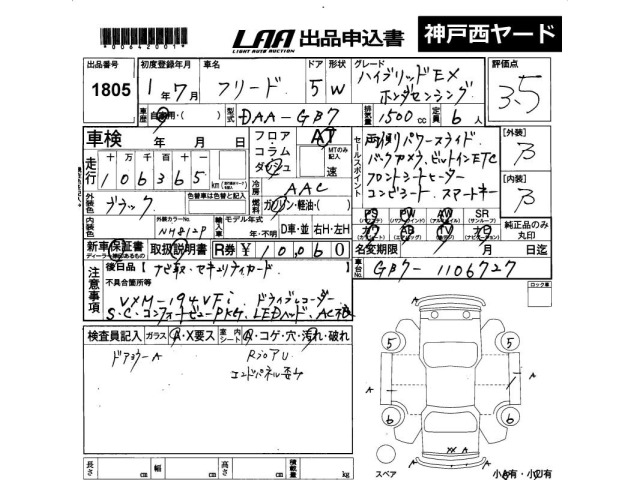 *00642001*
LAA 出品申込書 神戸西ヤード
LIGHT AUTO AUCTION
出品番号 初度登録年月 車名 ドア 形状 グレード 評価点
1805 1年7月 フリード 5 W ハイブリッドEX ホンダセンシング 3.5
車歴 自家用・( ) 型式 DAA-GB7 排気量 1500cc 定員 6人
車検 年 月 日 フロア・コラム ダッシュ AT MTのみ記入 速
セールスポイント 両側パワースライド
バックカメラ、ビルトインETC
フロントシートヒーター
コンビシート スマートキー
[外装] B
[内装] B
走行 十万千百十一 106365 km
冷房 AAC
外装色 ブラック 色替車は色替と記入 燃料 ガソリン・軽油・( )
PS PW AW SR
(パワステ) (パワーウインド) (アルミホイル) (サンルーフ)
純正品のみ丸印
内装色 外装カラーNo. NH812P 輸入車 モデル年式 年・不明 D車・並 右H・左H
新車保証書 取扱説明書 R券 ¥10,060 名変期限 月 日迄
ディーラー印のあるもの
注意事項 後日品 [ナビ取・セキュリティカード
車台No. GB7-1106727
不具合箇所等
VXM-194VFi ドライブレコーダー
S・C・コンフォートビューPKG、LEDヘッド、AC不良
ロック車
検査員記入 ガラス A・X要ス 車内シート A・コゲ・穴・汚れ・破れ
ドアミラーA
RドアU
エンドパネル歪み
5 5
A A
6 6
XX A
A
スペア
小A有・小U有
長さ cm 幅 cm 高さ cm 積載量 kg